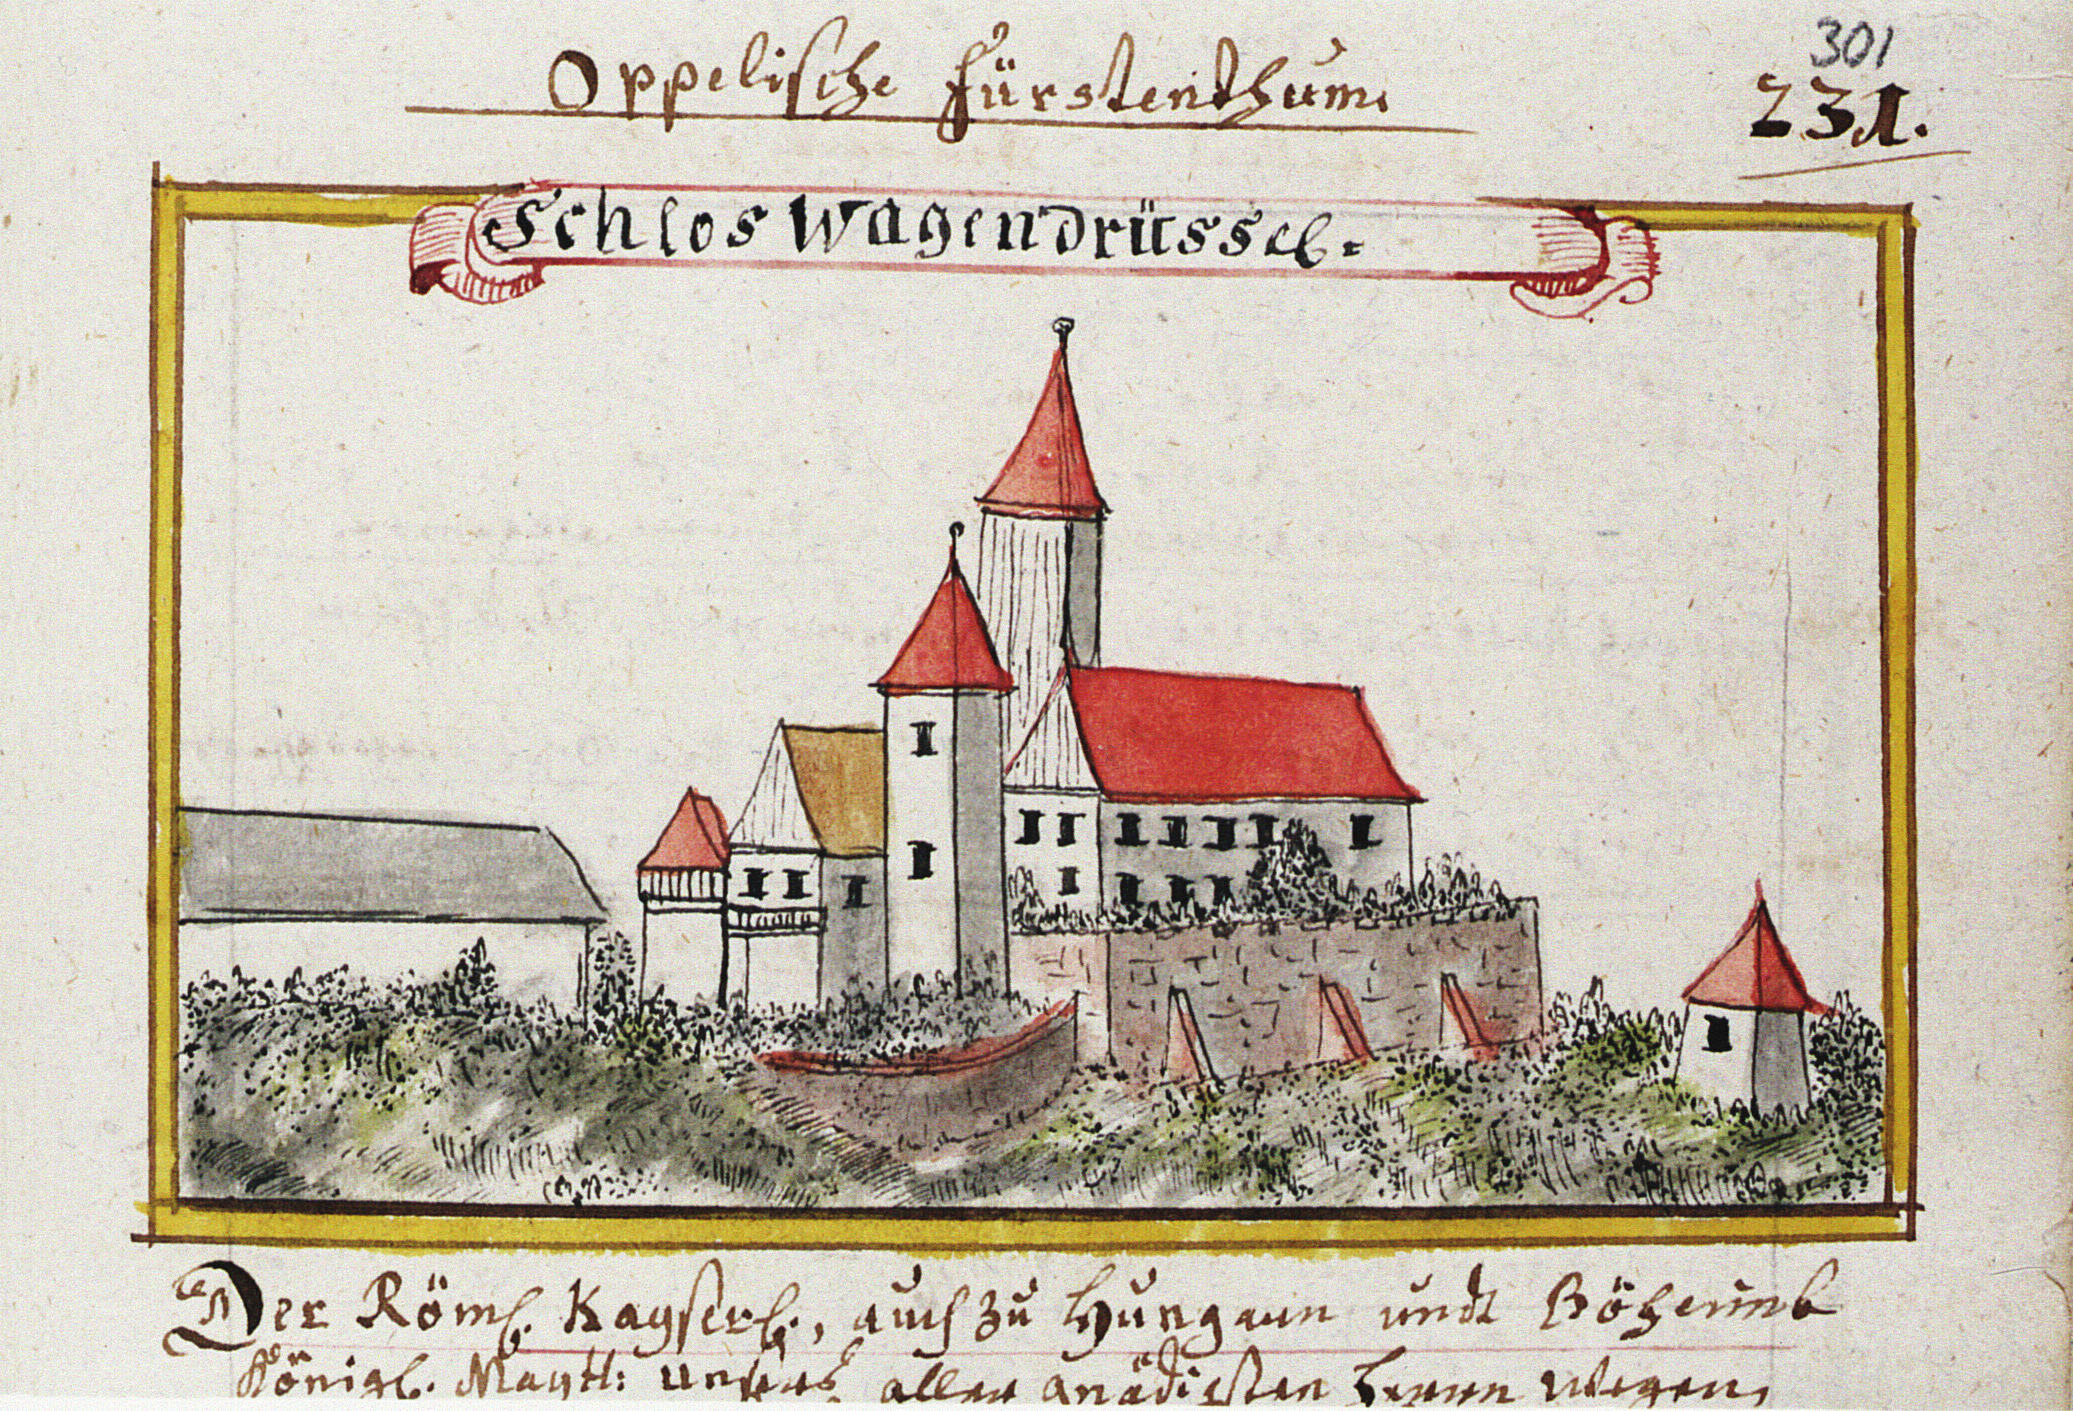 301
Oppelische Fürstenthum.
231.
Schlos Wagendrüssel.
Der Röml. Kayserl., auch zu Hungarn undt Böheimb
Königl. Maytt: unsers aller gnädigsten Herrn wegen,